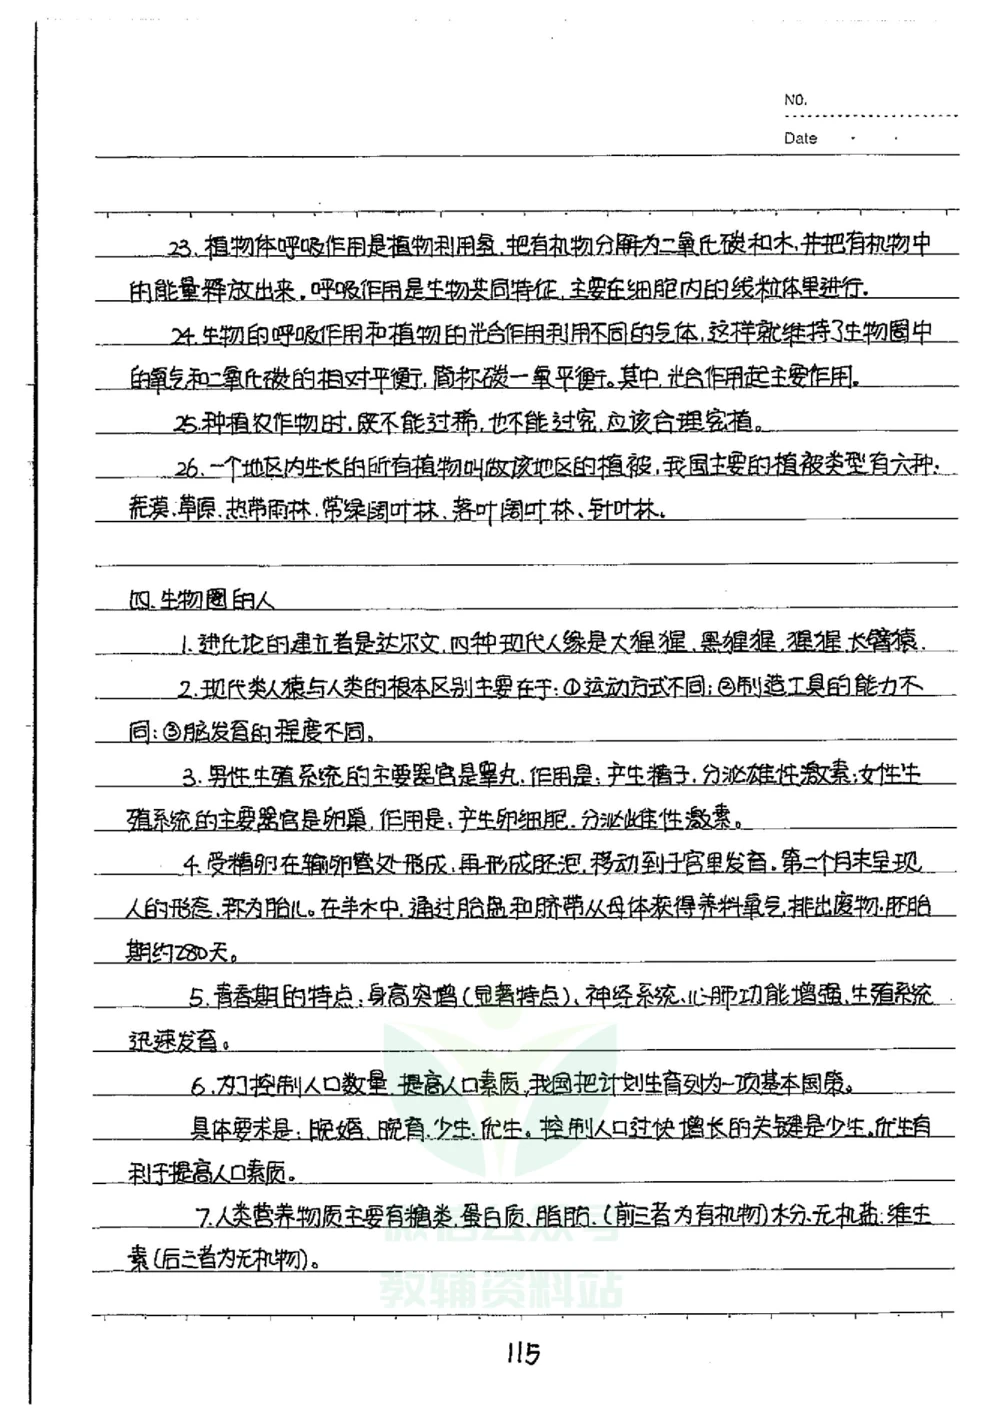 NO.
Date
23. 植物体呼吸作用是植物利用氧,把有机物分解为二氧化碳和水,并把有机物中
的能量释放出来,呼吸作用是生物共同特征,主要在细胞内的线粒体里进行.
24.生物的呼吸作用和植物的光合作用利用不同的气体,这样就维持了生物圈中
的氧气和二氧化碳的相对平衡,简称碳一氧平衡。其中,光合作用起主要作用。
25.种植农作物时,既不能过稀,也不能过密,应该合理密植。
26.一个地区内生长的所有植物叫做该地区的植被,我国主要的植被类型有六种.
荒漠、草原、热带雨林、常绿阔叶林、落叶阔叶林、针叶林。
四.生物圈的人
1.进化论的建立者是达尔文,四种现代人缘是大猩猩,黑猩猩,猩猩,长臂猿.
2.现代类人猿与人类的根本区别主要在于:①运动方式不同;②制造工具的能力不
同;③脑发育的程度不同。
3.男性生殖系统的主要器官是睾丸,作用是:产生精子,分泌雄性激素;女性生
殖系统的主要器官是卵巢,作用是:产生卵细胞,分泌雌性激素。
4.受精卵在输卵管处形成,再形成胚泡,移动到子宫里发育。第二个月末呈现
人的形态,称为胎儿。在羊水中,通过胎盘和脐带从母体获得养料氧气,排出废物.胚胎
期约280天。
5.青春期的特点:身高突增(显著特点)、神经系统、心肺功能增强、生殖系统
迅速发育。
6.为了控制人口数量,提高人口素质,我国把计划生育列为一项基本国策。
具体要求是:晚婚、晚育、少生、优生。控制人口过快增长的关键是少生。优生有
利于提高人口素质。
7.人类营养物质主要有糖类、蛋白质、脂肪、(前三者为有机物)水分、无机盐、维生
素(后三者为无机物)。
微信公众号
教辅资料站
115